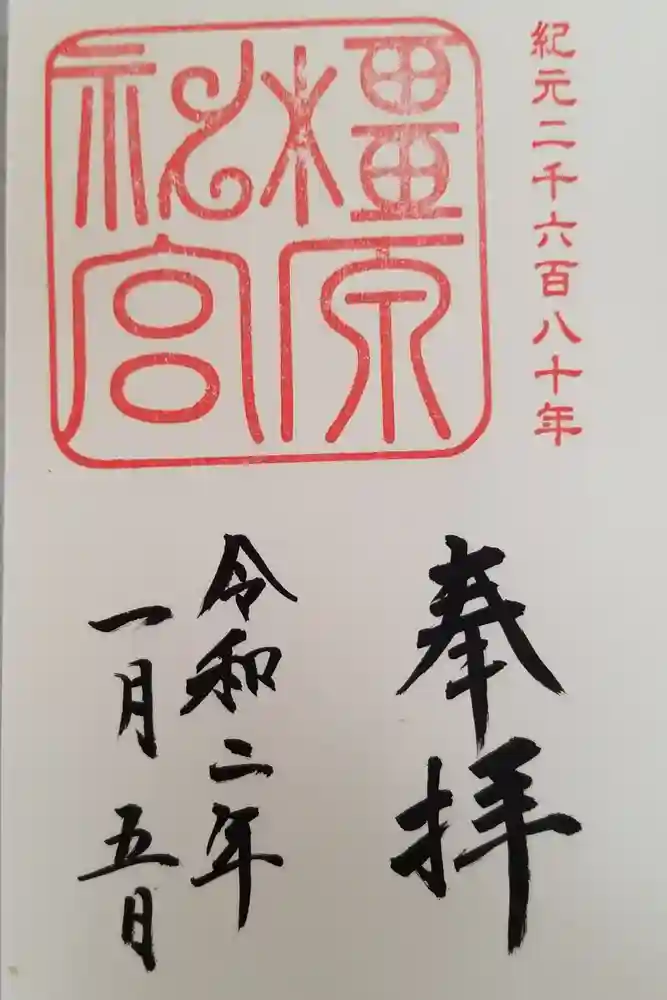 紀元二千六百八十年
橿原
神宮
奉拝
令和二年
一月五日